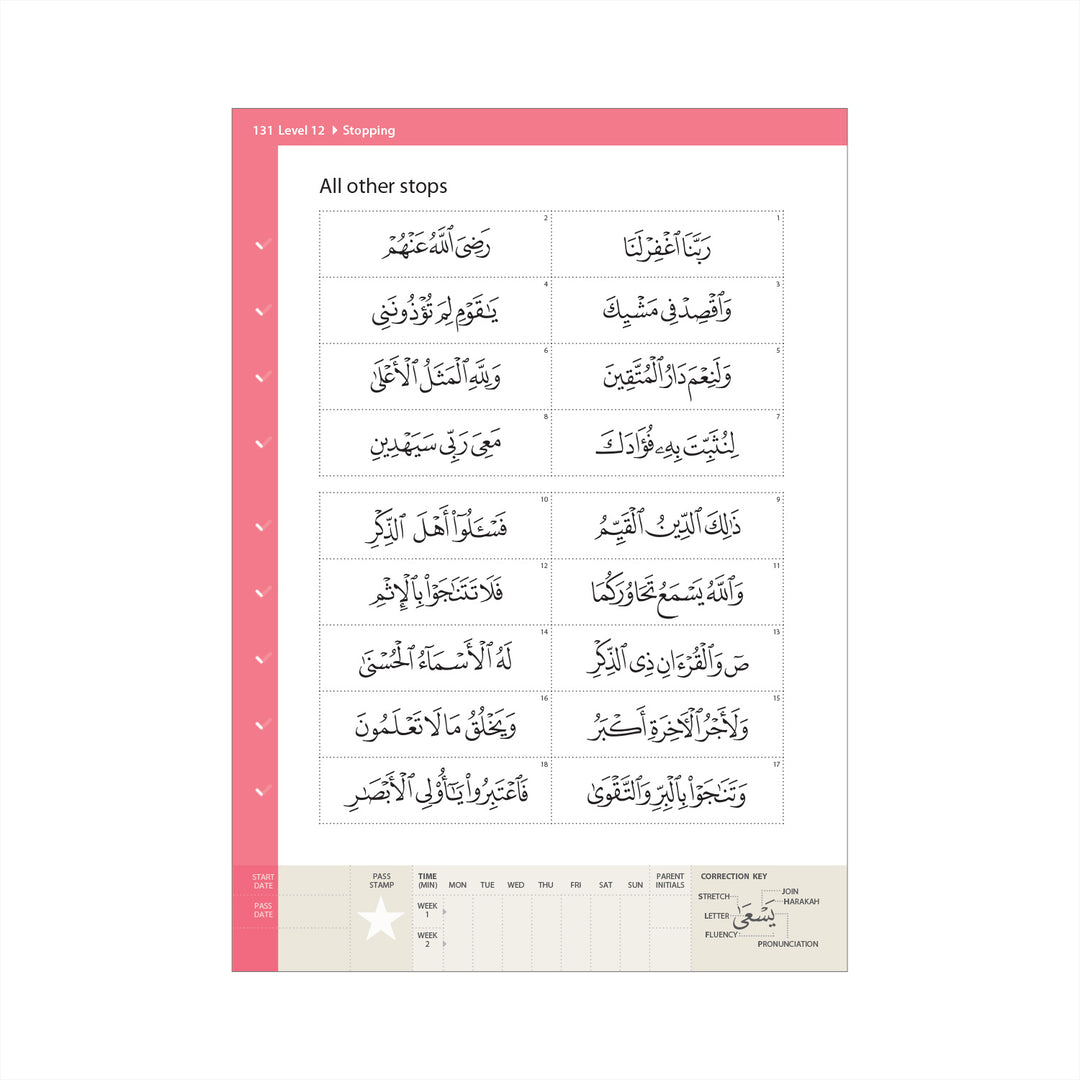 131 Level 12 ▶ Stopping
All other stops
1 رَبَّنَا ٱغْفِرْ لَنَا
2 رَضِىَ ٱللَّهُ عَنْهُمْ
3 وَٱقْصِدْ فِى مَشْيِكَ
4 يَـٰقَوْمِ لِمَ تُؤْذُونَنِى
5 وَلَنِعْمَ دَارُ ٱلْمُتَّقِينَ
6 وَلِلَّهِ ٱلْمَثَلُ ٱلْأَعْلَىٰ
7 لِنُثَبِّتَ بِهِۦ فُؤَادَكَ
8 مَعِىَ رَبِّى سَيَهْدِينِ
9 ذَٰلِكَ ٱلدِّينُ ٱلْقَيِّمُ
10 فَسْـَٔلُوٓا۟ أَهْلَ ٱلذِّكْرِ
11 وَٱللَّهُ يَسْمَعُ تَحَاوُرَكُمَا
12 فَلَا تَتَنَـٰجَوْا۟ بِٱلْإِثْمِ
13 صٓ وَٱلْقُرْءَانِ ذِى ٱلذِّكْرِ
14 لَهُ ٱلْأَسْمَآءُ ٱلْحُسْنَىٰ
15 وَلَأَجْرُ ٱلْـَٔاخِرَةِ أَكْبَرُ
16 وَيَخْلُقُ مَا لَا تَعْلَمُونَ
17 وَتَنَـٰجَوْا۟ بِٱلْبِرِّ وَٱلتَّقْوَىٰ
18 فَٱعْتَبِرُوا۟ يَـٰٓأُو۟لِى ٱلْأَبْصَـٰرِ
START DATE
PASS DATE
PASS STAMP
TIME (MIN) MON TUE WED THU FRI SAT SUN
WEEK 1
WEEK 2
PARENT INITIALS
CORRECTION KEY
STRETCH
JOIN
HARAKAH
LETTER
يَسْعَىٰ
FLUENCY
PRONUNCIATION